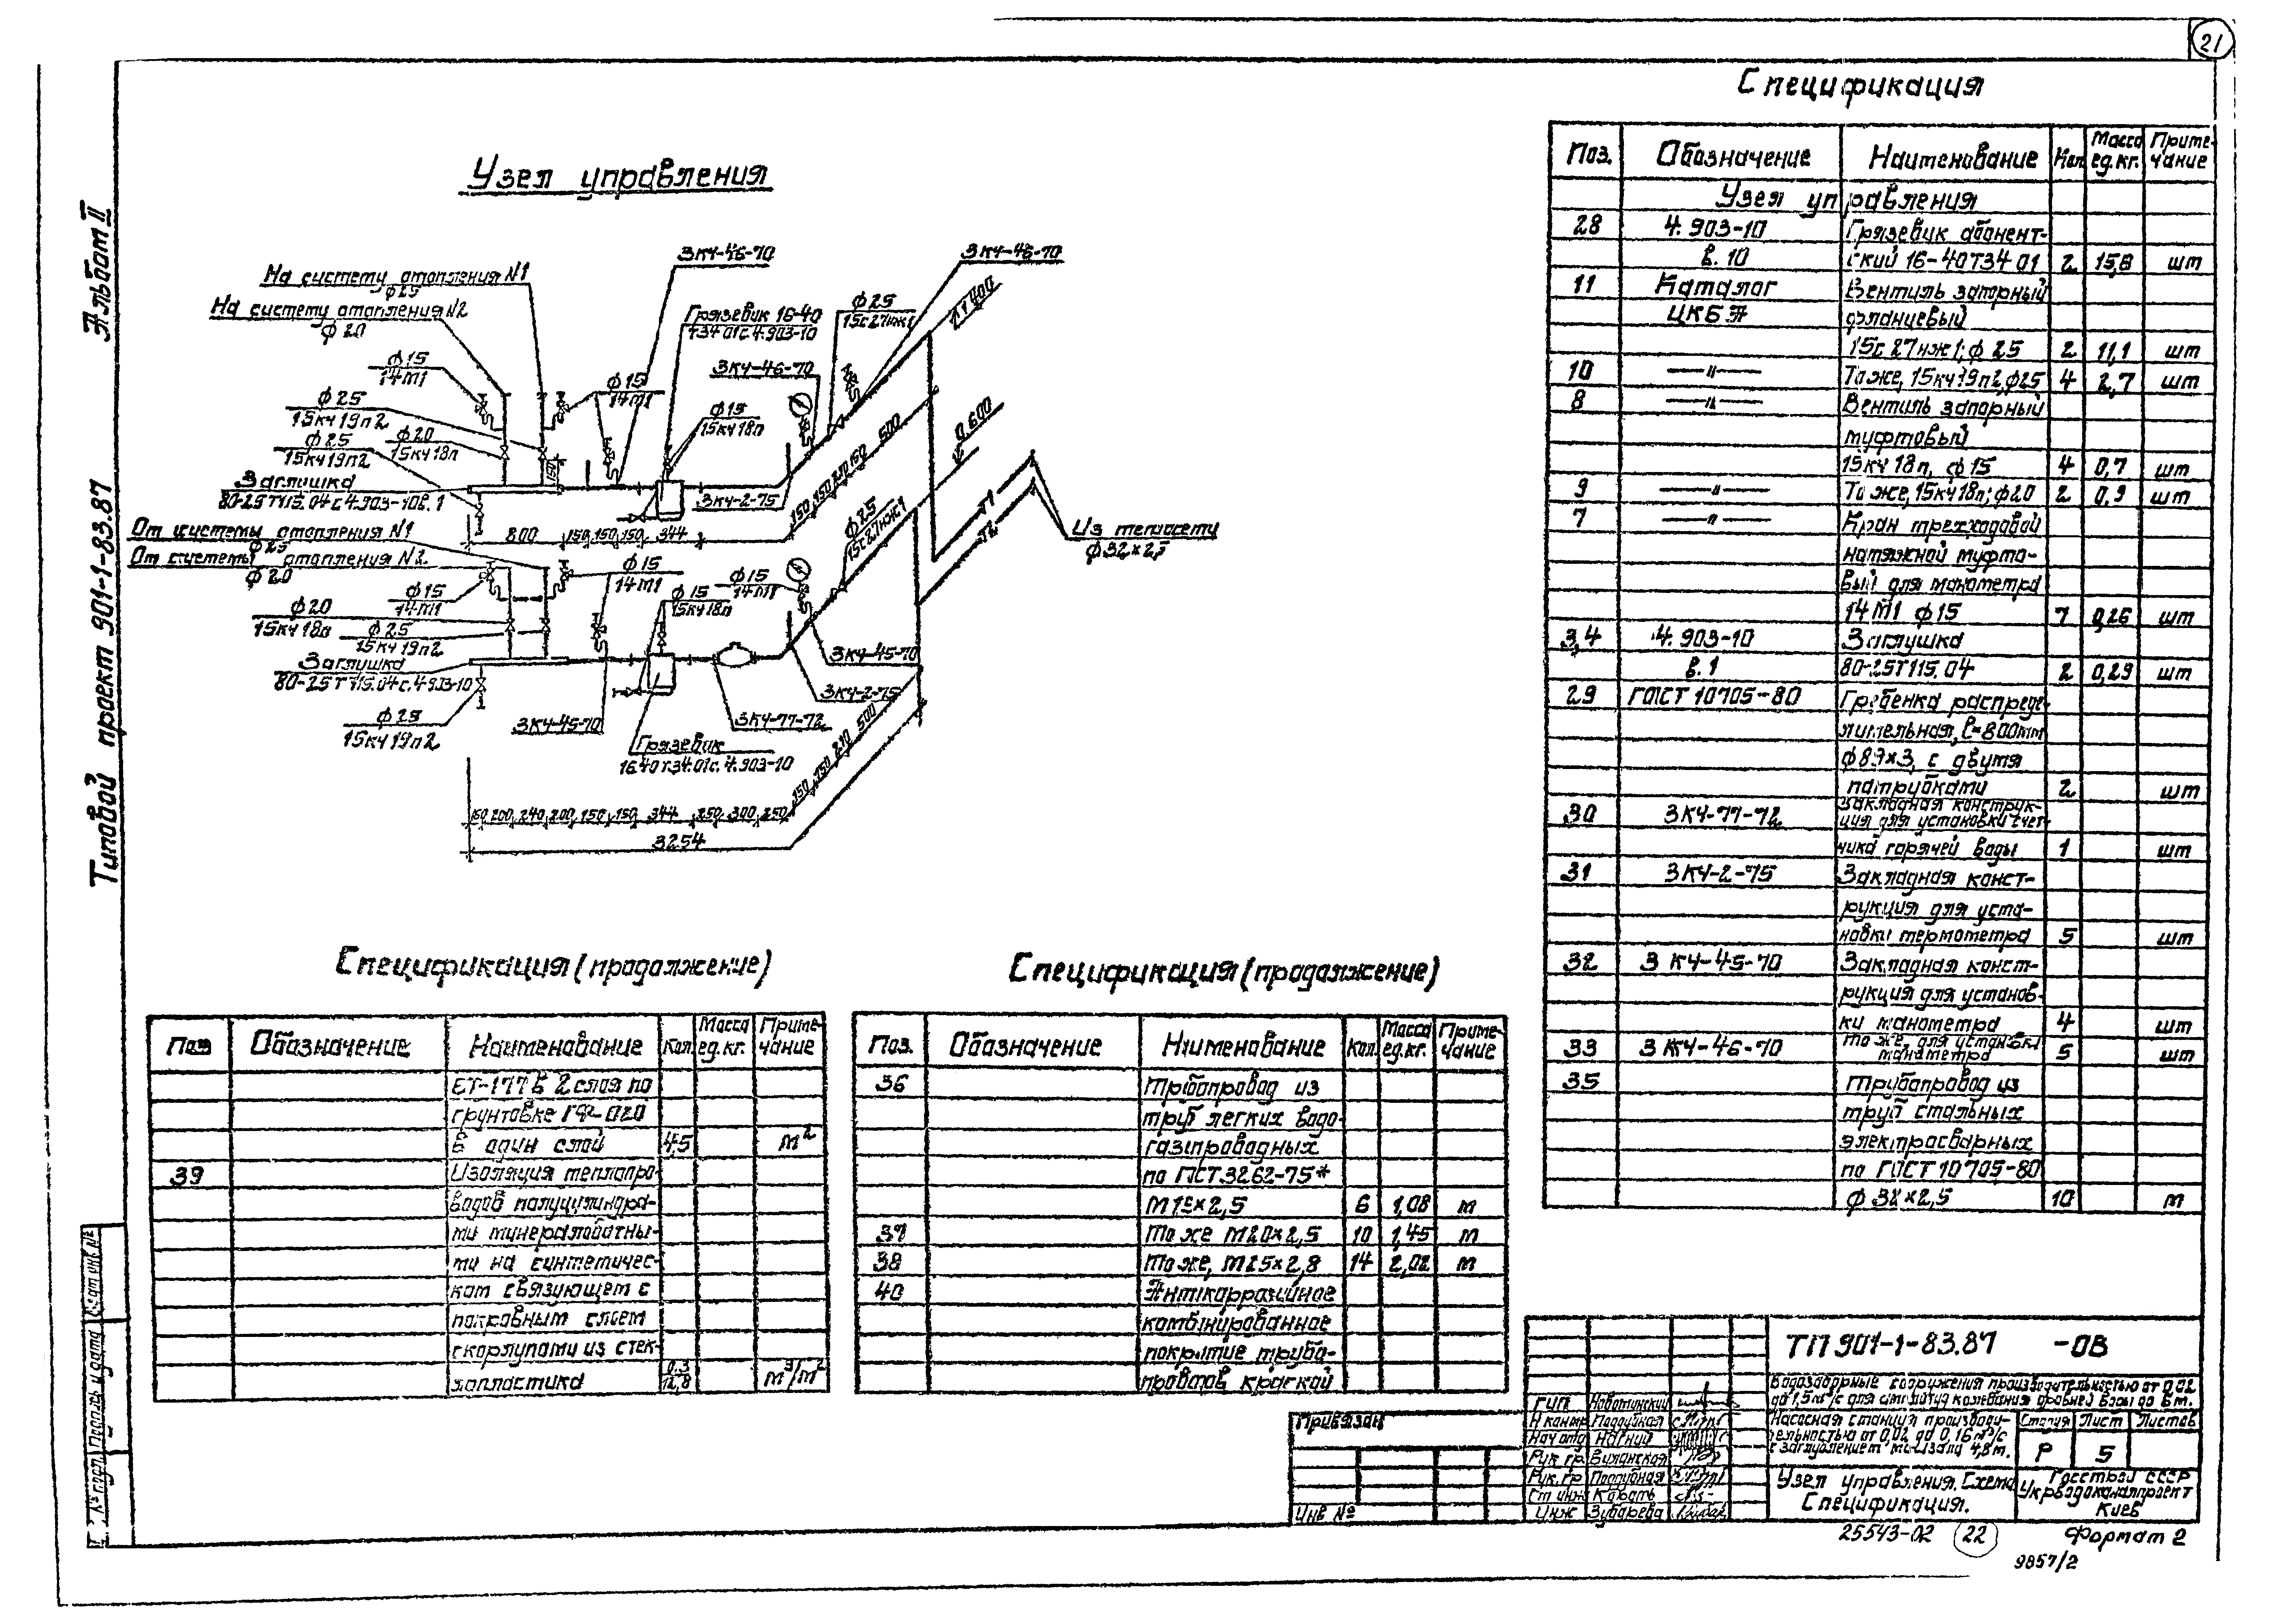 21
Альбом II
Типовой проект 901-1-83.87
Узел управления
3КЧ-46-70
3КЧ-46-70
На систему отопления N1
ф25
На систему отопления N2
ф20
ф15
14М1
ф25
15кч19п2
ф25
15кч19п2
ф20
15кч18п
Заглушка
80-25Т115.04 с.4.903-10в.1
ф15
14М1
Грязевик 16-40
Т34 01с.4.903-10
3КЧ-46-70
ф15
15кч18п
3КЧ-2-75
ф25
15с27нж1
0,600
ф25
15с27нж1
150
800
150 150 150 344
150 150 210 150 500
Т1
Т2
Из теплосети
ф32×2,5
От системы отопления N1
ф25
От системы отопления N2
ф20
ф15
14М1
ф20
15кч18п
ф25
15кч19п2
Заглушка
80-25Т115.04с.4.903-10
15кч19п2
ф15
14М1
ф15
15кч18п
ф15
14М1
3КЧ-45-70
3КЧ-2-75
3КЧ-77-72
3КЧ-45-70
Грязевик
16.40Т34.01с.4.903-10
150 150 210 500
200 240 200 150 150 344 250 300 250
3254
Спецификация
Поз. Обозначение Наименование Кол Масса ед.кг. Примечание
Узел управления
28 4.903-10 Грязевик абонент-
в.10 ский 16-40Т34 01 2 15,8 шт
11 Каталог Вентиль запорный
ЦКБА фланцевый
15с27нж1; ф25 2 11,1 шт
10 —"— То же, 15кч19п2, ф25 4 2,7 шт
8 —"— Вентиль запорный
муфтовый
15кч18п, ф15 4 0,7 шт
9 —"— То же, 15кч18п; ф20 2 0,9 шт
7 —"— Кран трехходовой
натяжной муфто-
вый для манометра
14М1 ф15 7 0,26 шт
3,4 4.903-10 Заглушка
в.1 80-25Т115.04 2 0,29 шт
29 ГОСТ 10705-80 Гребенка распреде-
лительная, l=800мм
ф89×3, с двумя
патрубками 2 шт
30 3КЧ-77-72 Закладная конструк-
ция для установки счет-
чика горячей воды 1 шт
31 3КЧ-2-75 Закладная конст-
рукция для уста-
новки термометра 5 шт
32 3 КЧ-45-70 Закладная конст-
рукция для установ-
ки манометра 4 шт
33 3 КЧ-46-70 То же, для установки
манометра 5 шт
35 Трубопровод из
труб стальных
электросварных
по ГОСТ 10705-80
ф 32×2,5 10 м
Спецификация (продолжение)
Поз Обозначение Наименование Кол. Масса ед.кг. Примечание
ЕТ-177 в 2 слоя по
грунтовке ГФ-020
в один слой 4,5 м²
39 Изоляция теплопро
водов полуцилиндра-
ми минераловатны-
ми на синтетичес-
ком связующем с
покровным слоем
скорлупами из стек-
лопластика 0.3/12,8 м³/м²
Спецификация (продолжение)
Поз. Обозначение Наименование Кол. Масса ед.кг. Примечание
36 Трубопровод из
труб легких водо-
газпроводных
по ГОСТ 3262-75*
М15×2,5 6 1,08 м
37 То же М20×2,5 10 1,45 м
38 То же, М25×2,8 14 2,02 м
40 Антикоррозийное
комбинированное
покрытие трубо-
проводов краской
Привязан
Инв №
ТП 901-1-83.87 -ОВ
Водозаборные сооружения производительностью от 0,02
до 1,5м³/с для амплитуд колебания уровней воды до 6м.
Насосная станция производи-
тельностью от 0,02 до 0,16м³/с
с заглублением машзала 4,8м.
Стадия Лист Листов
Р 5
Узел управления. Схема
Спецификация.
Госстрой СССР
Укрводоканалпроект
Киев
ГИП
Н контр Поддубная
Нач отд
Рук гр
Рук. гр Поддубная
Ст инж
Инж Зубарева
25543-02 22 Формат 2
9857/2